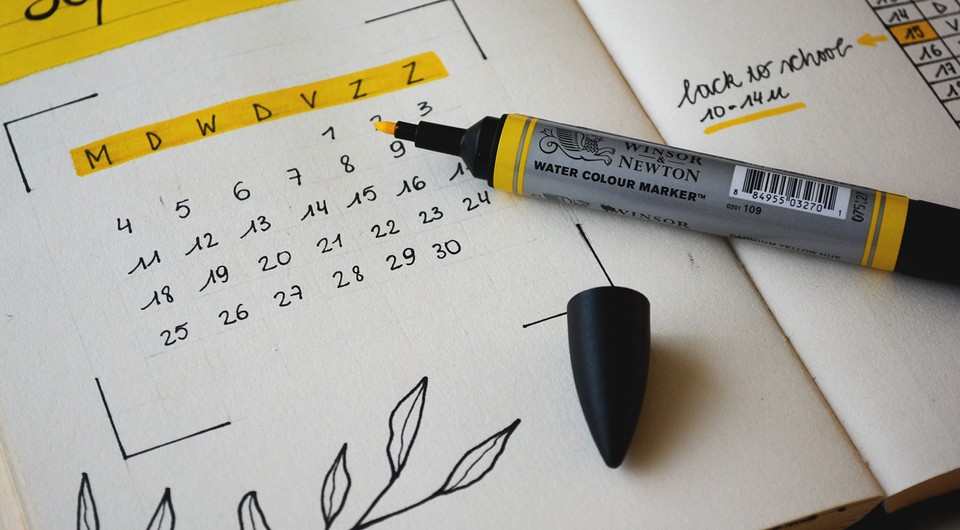 M D W D V Z Z
1 3
4 5 6 7 8 9
11 12 13 14 15 16
18 19 20 21 22 23 24
25 26 27 28 29 30
back to school
10-14u
14 D
15 V
16
17
WINSOR
&
NEWTON
WATER COLOUR MARKER™
8 84955 03270 1
0201 109
075(2)
WINSOR
CADMIUM YELLOW HUE